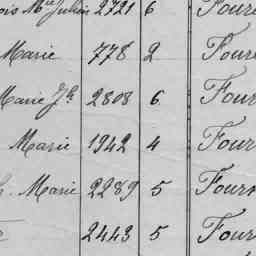 ois Mie Julien 2721 6 Four
Marie 778 2 Four
Marie Jh 2808 6 Four
Marie 1942 4 Four
Marie 2289 5 Fours
2443 5 Four